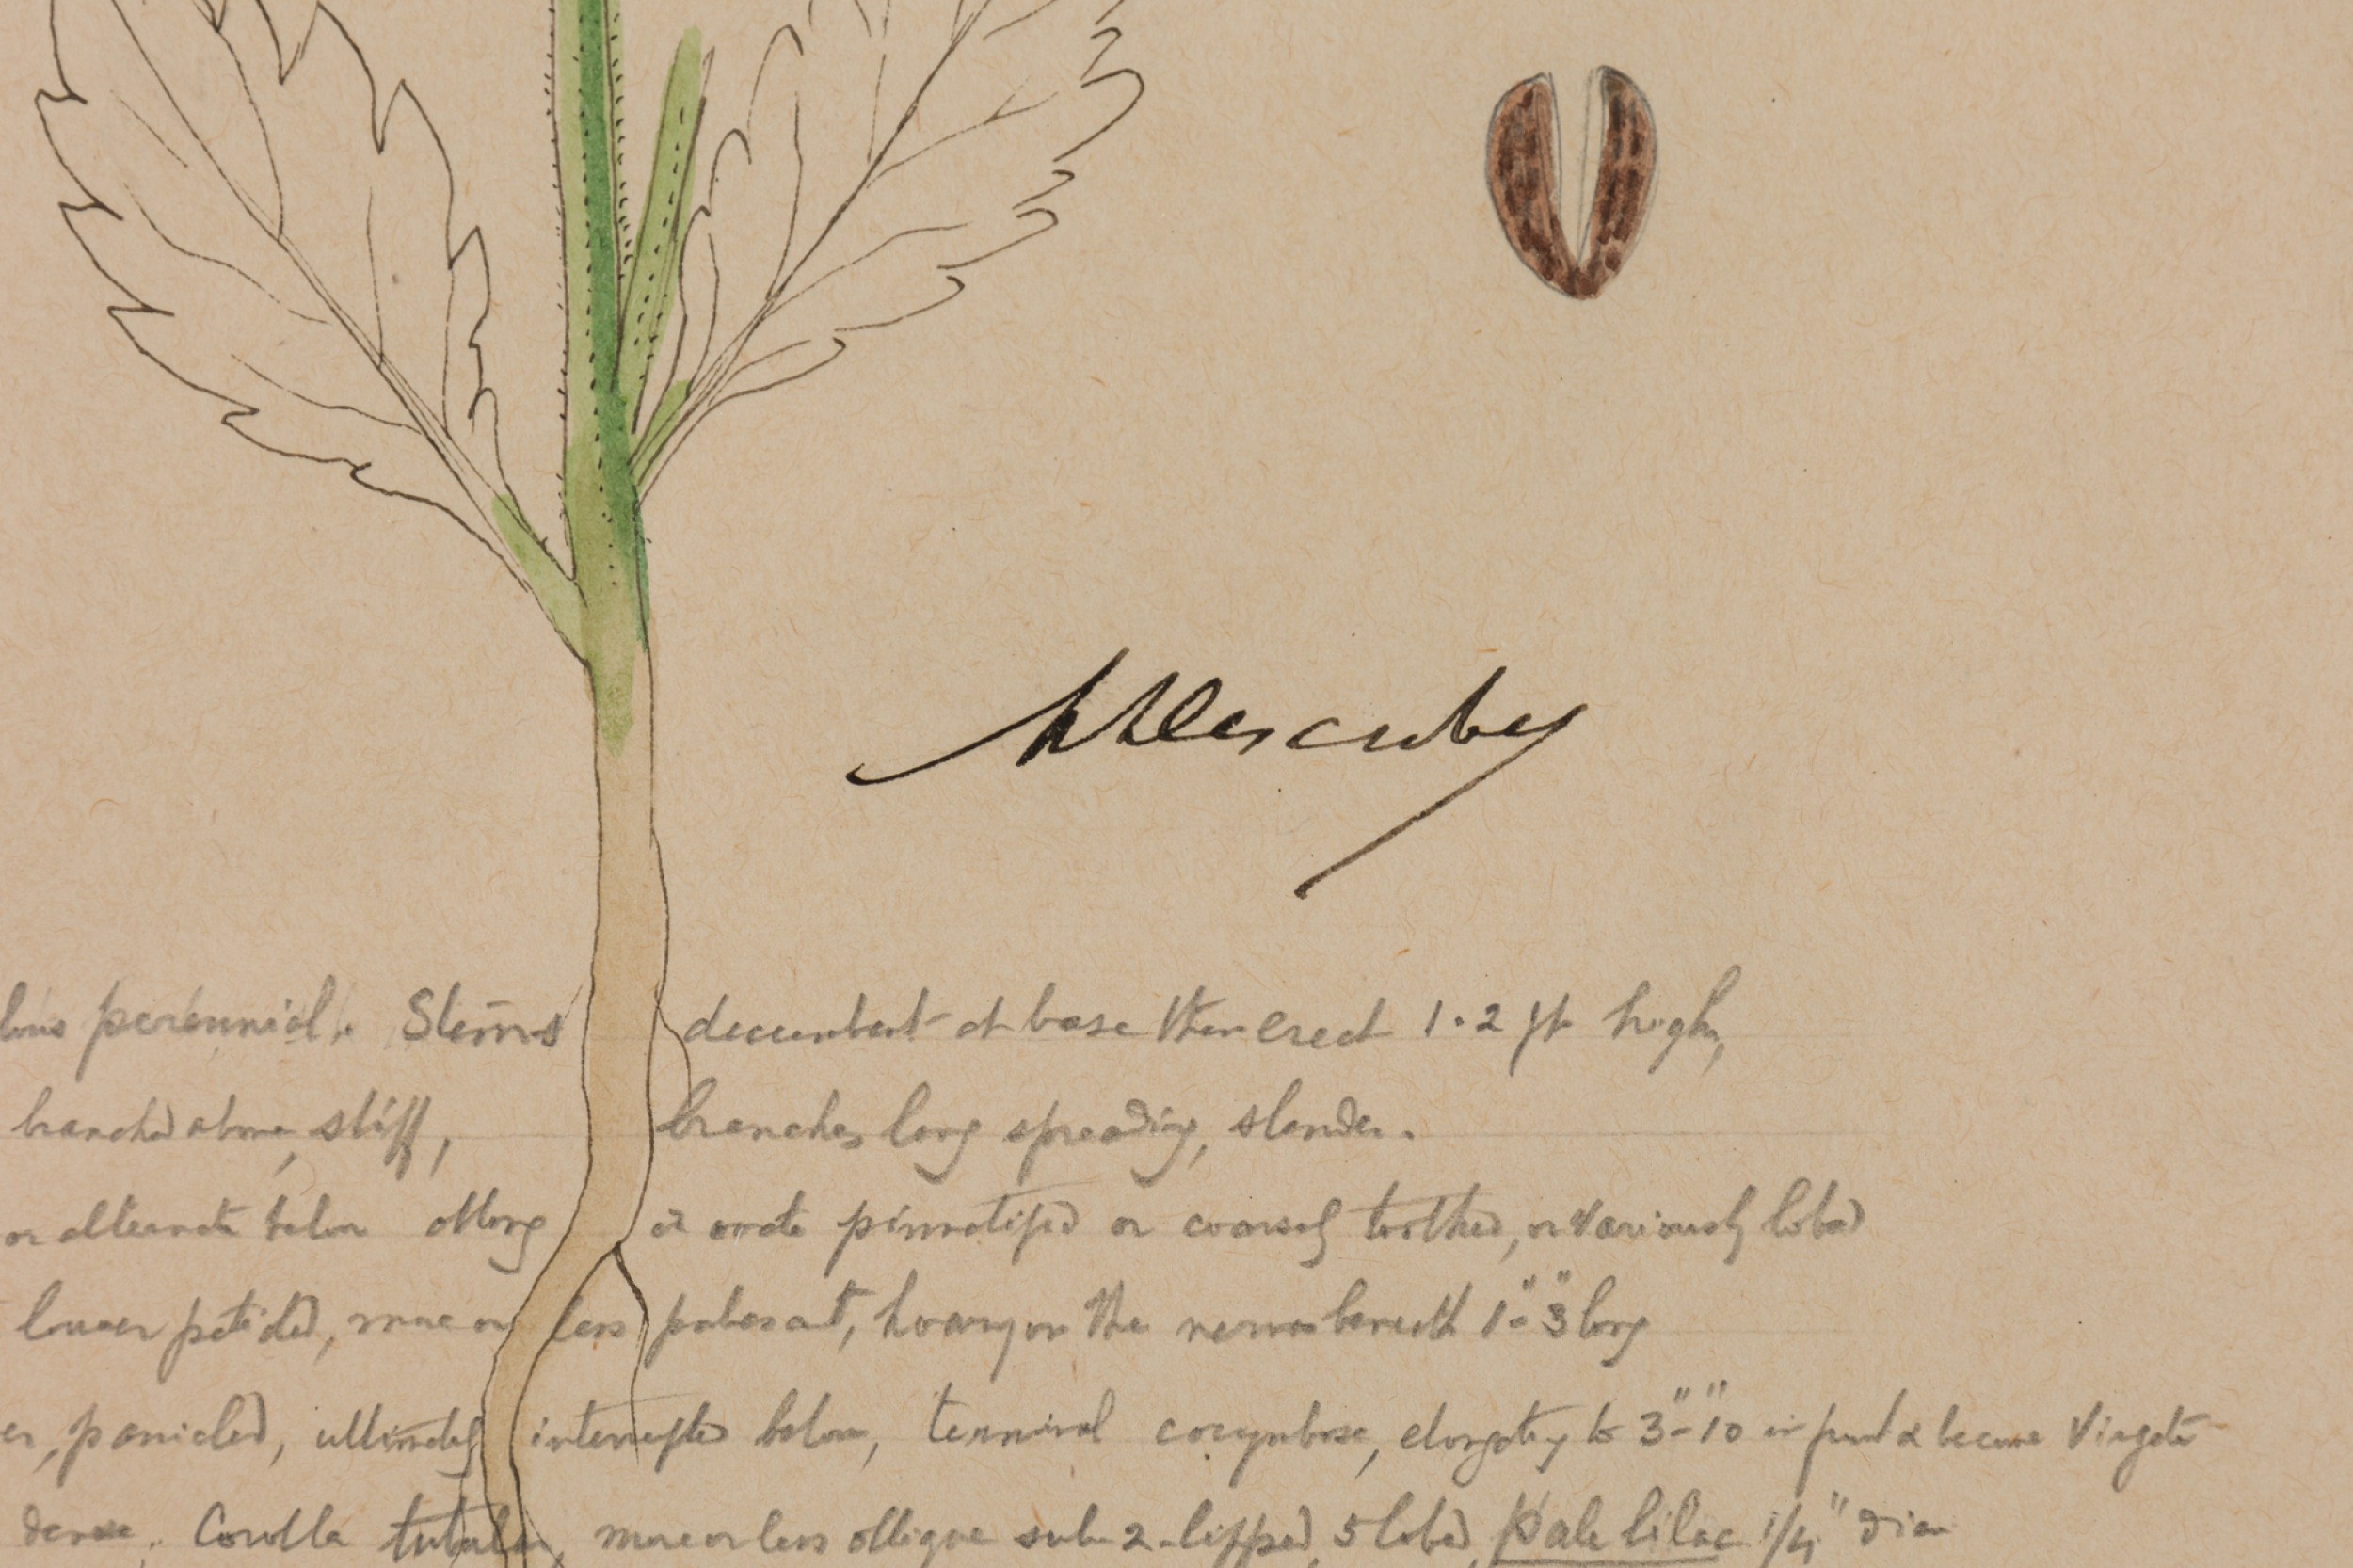 perennial. Stems decumbent at base then erect 1-2 ft high,
branched above, stiff, branches long spreading, slender.
or alternate below oblong or ovate pinnatifid or coarsely toothed, or variously lobed
lower petioled, more or less pubescent, hoary on the nerves beneath 1"-3" long
panicled, ultimately interrupted below, terminal corymbose, elongating to 3"-10 in fruit & become Virgate
dense. Corolla tubular, more or less oblique sub 2-lipped, 5 lobed, Pale lilac 1/4" diam